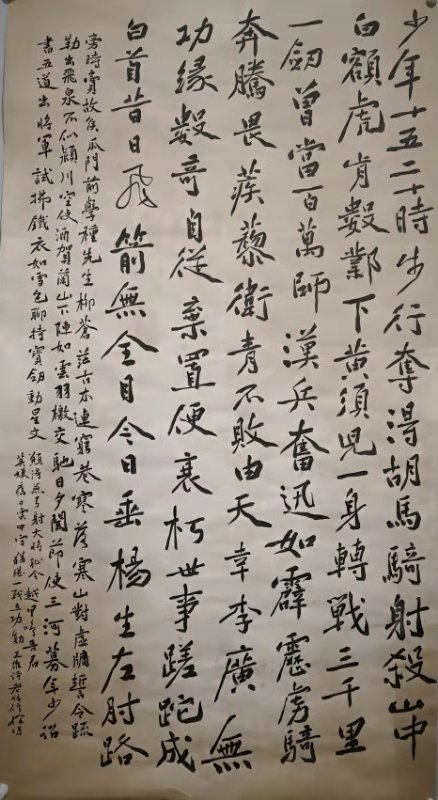 少年十五二十時步行奪得胡馬騎射殺山中
白額虎肯數鄴下黄須兒一身轉戰三千里
一劒曾當百萬師漢兵奮迅如霹靂虜騎
奔騰畏蒺藜衛青不敗由天幸李廣無
功緣數奇自從棄置便衰朽世事蹉跎成
白首昔日飛箭無全目今日垂楊生左肘路
旁時賣故侯瓜門前學種先生柳蒼茫古木連窮巷寥落寒山對虛牖誓令疏
勒出飛泉不似潁川空使酒賀蘭山下陣如雲羽檄交馳日夕聞節使三河募年少詔
書五道出將軍試拂鐵衣如雪色聊持寶劒動星文
願得燕弓射大將恥令越甲鳴吾君
莫嫌舊日雲中守猶堪一戰立功勳 王維詩老將行